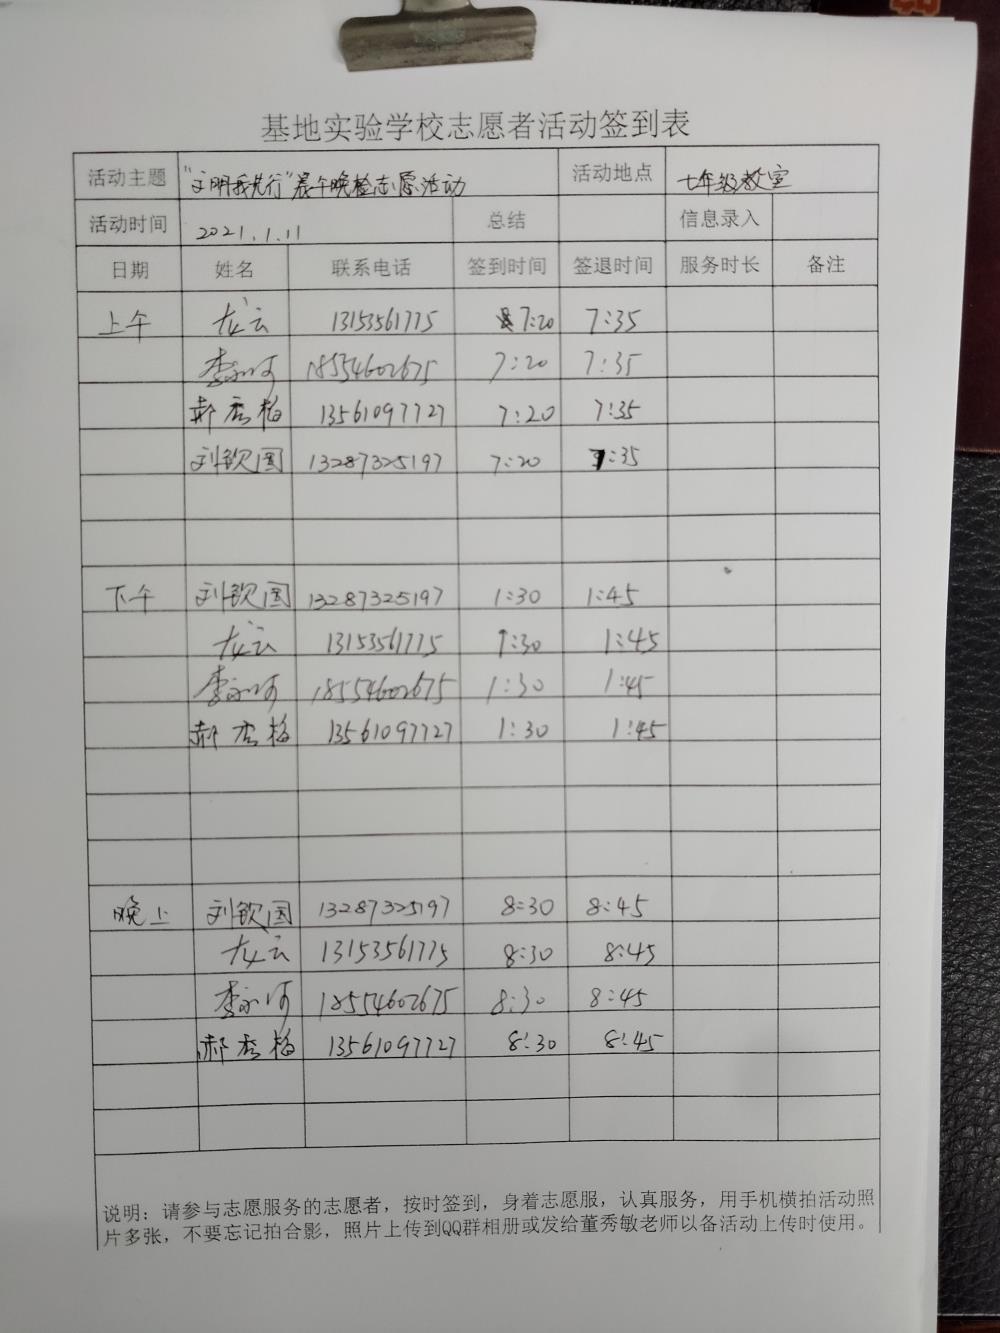 基地实验学校志愿者活动签到表
活动主题 "文明我先行"晨午晚检志愿活动 活动地点 七年级教室
活动时间 2021.1.11 总结 信息录入
日期 姓名 联系电话 签到时间 签退时间 服务时长 备注
上午 龙云 13153561775 7:20 7:35
李永河 18554602675 7:20 7:35
郝秀梅 13561097727 7:20 7:35
刘钦国 13287325197 7:20 7:35
下午 刘钦国 13287325197 1:30 1:45
龙云 13153561775 1:30 1:45
李永河 18554602675 1:30 1:45
郝秀梅 13561097727 1:30 1:45
晚上 刘钦国 13287325197 8:30 8:45
龙云 13153561775 8:30 8:45
李永河 18554602675 8:30 8:45
郝秀梅 13561097727 8:30 8:45
说明：请参与志愿服务的志愿者，按时签到，身着志愿服，认真服务，用手机横拍活动照
片多张，不要忘记拍合影，照片上传到QQ群相册或发给董秀敏老师以备活动上传时使用。